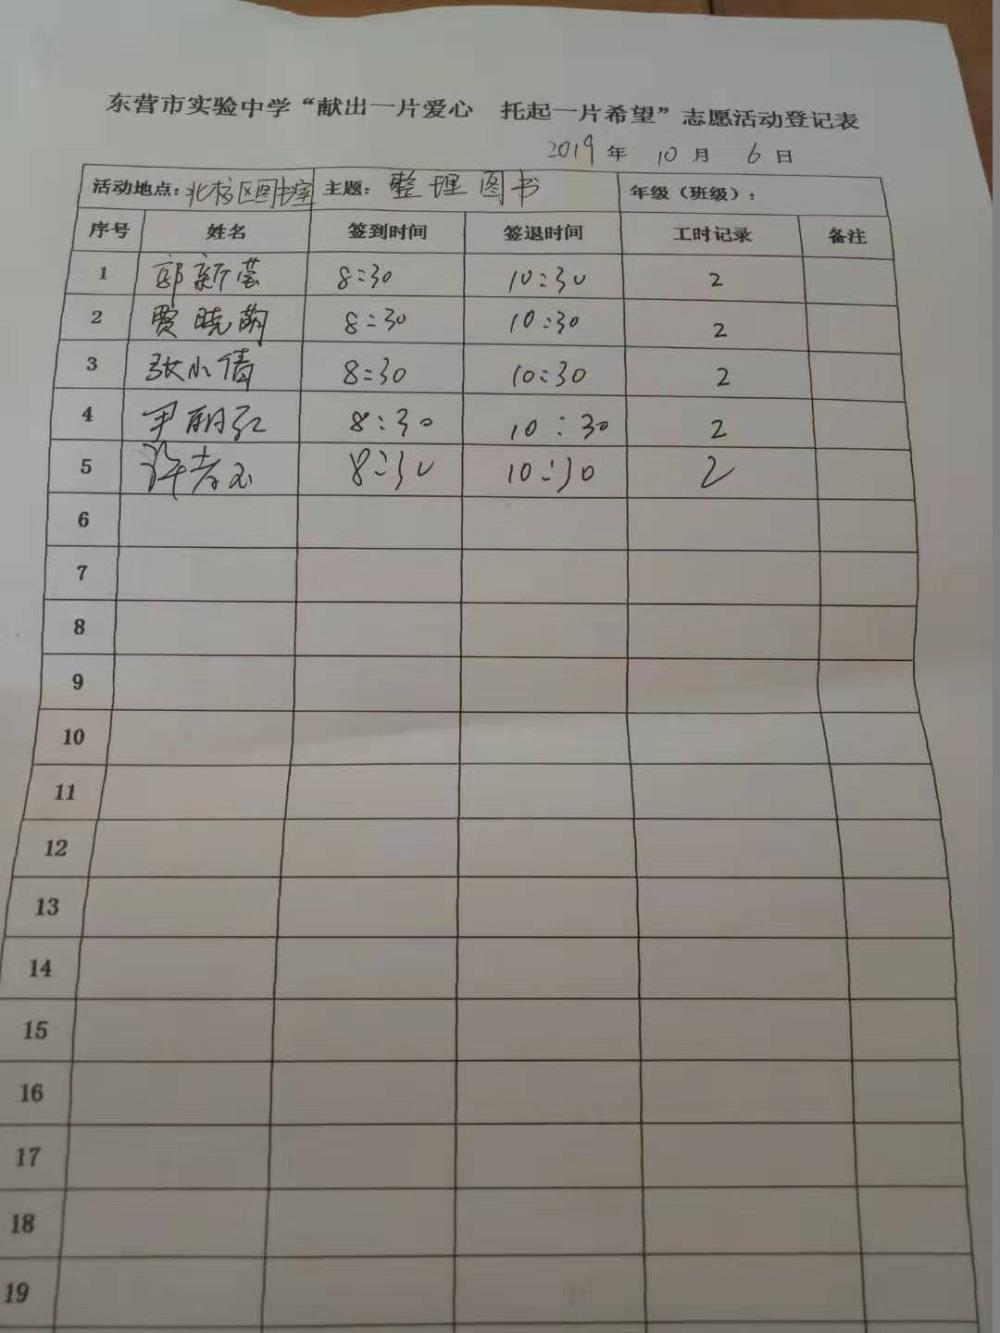 东营市实验中学“献出一片爱心 托起一片希望”志愿活动登记表
2019年 10月 6日
活动地点：北校区图书室 主题：整理图书 年级（班级）：
序号 姓名 签到时间 签退时间 工时记录 备注
1 郭新莹 8:30 10:30 2
2 贾晓萌 8:30 10:30 2
3 张小倩 8:30 10:30 2
4 尹丽红 8:30 10:30 2
5 许孝玉 8:30 10:30 2
6
7
8
9
10
11
12
13
14
15
16
17
18
19